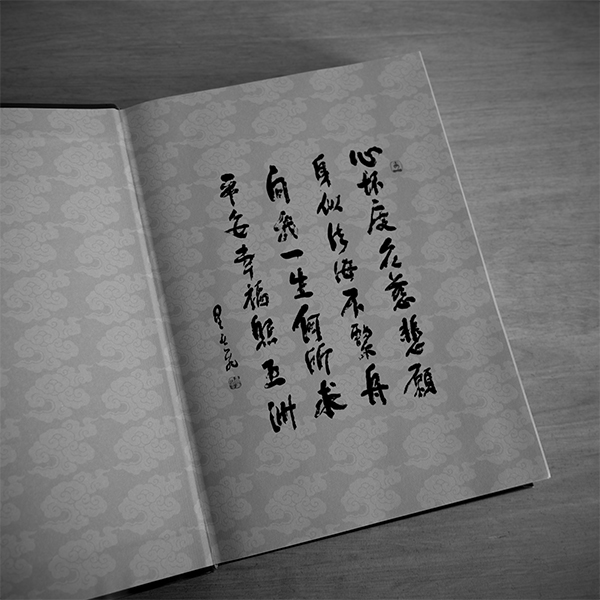 心怀度众慈悲願
身似法海不繫舟
問我一生何所求
平安幸福照五洲